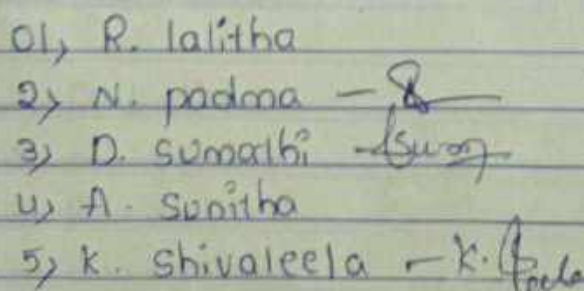 01, R. lalitha
2, N. padma -
3, D. sumathi -
4, A. sunitha
5, K. shivaleela - K.